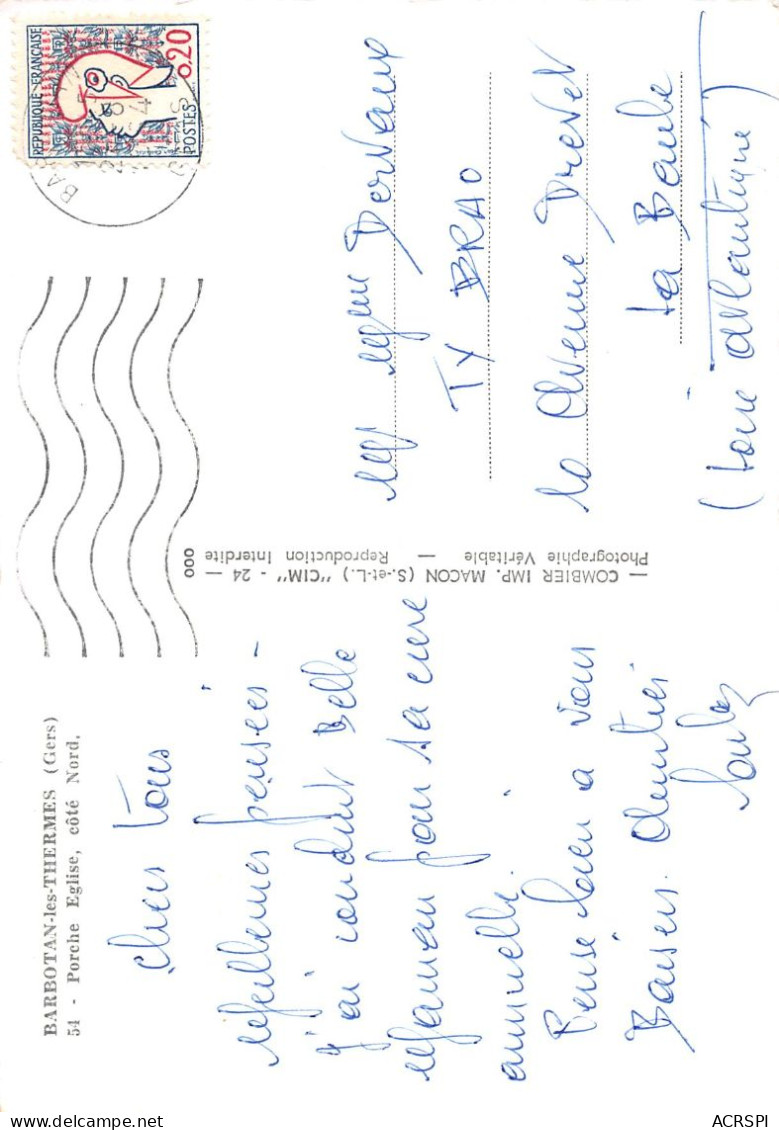 BARBOTAN-les-THERMES (Gers)
54 - Porche Eglise, côté Nord.
Chers Tous
Meilleures pensées -
J'ai conduit Belle
Maman pour sa cure
annuelle.
Pense bien à vous
Baisers
— COMBIER IMP. MACON (S.-et-L.) "CIM" - 24 —
Photographie Véritable — Reproduction Interdite
000
REPUBLIQUE FRANÇAISE
0,20
POSTES
Dervaux
TY BRAO
10 Avenue Drevet
La Baule
(Loire Atlantique)
ACRSPI